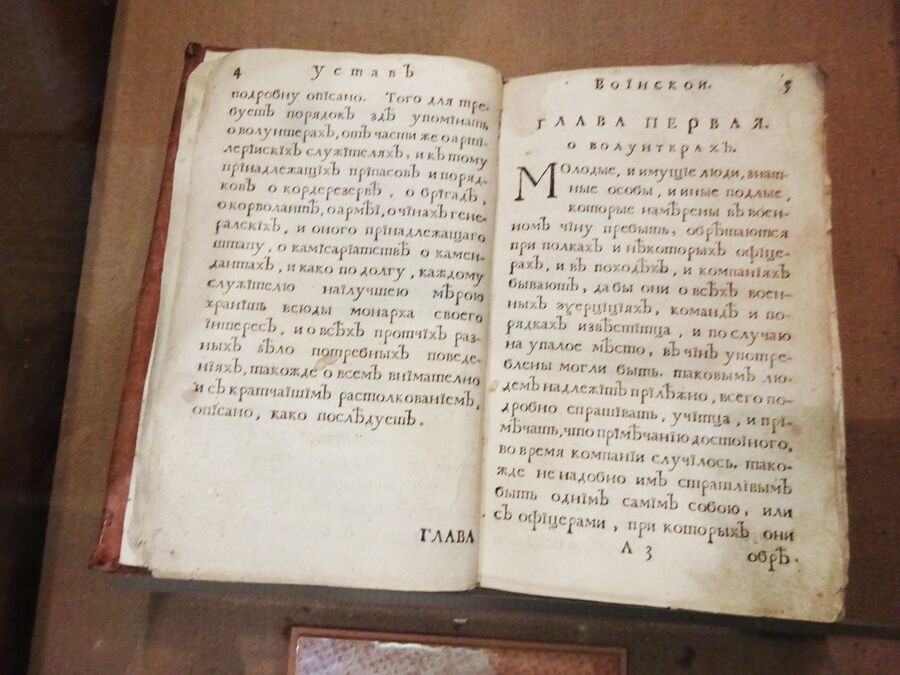 4
УСТАВЪ
подробну опісано. Того для тре-
буетъ порядокъ здѣ упомінать
о волунтерахъ, отъ части же о арті-
лерійскіхъ служітеляхъ, и къ тому
прінадлежащіхъ пріпасов и поряд-
ковъ о кордерезервѣ, о брігадѣ,
о корволантѣ, о арміі, о чінахъ гене-
ралскіхъ, и оного прінадлежащаго
штапу, о камісаріатствѣ о камен-
дантахъ, и како по долгу, каждому
служітелю наілучшею мѣрою
хранітъ всюды монарха своего
інтересъ, и о всѣхъ протчіхъ раз-
ныхъ зѣло потребныхъ поведе-
ніяхъ, такожде о всемъ внімателно
и съ кратчаішімъ растолкованіемъ,
опісано, како послѣдуетъ.
ГЛАВА
ВОІНСКОИ.
5
ГЛАВА ПЕРВАЯ.
О ВОЛУНТЕРАХЪ.
Молодые, и имущіе люди, знат-
ные особы, и иные подлые,
которые намѣрены въ воен-
номъ чіну пребыть, обрѣтаются
при полкахъ и нѣкоторыхъ офіце-
рахъ, и въ походѣхъ, и компаніяхъ
бываютъ, дабы они о всѣхъ воен-
ныхъ еѯерціціяхъ, командѣ и по-
рядкахъ извѣстітца, и по случаю
на упалое мѣсто, въ чінъ употре-
блены могли быть. таковымъ лю-
демъ надлежітъ прілѣжно, всего по-
дробно спрашівать, учітца, и прі-
мѣчать, что прімѣчанію достоіного,
во время компаніи случілось. тако-
жде не надобно имъ страшлівымъ
быть однімъ самімъ собою, или
съ офіцерами, при которыхъ они
А 3
обрѣ-